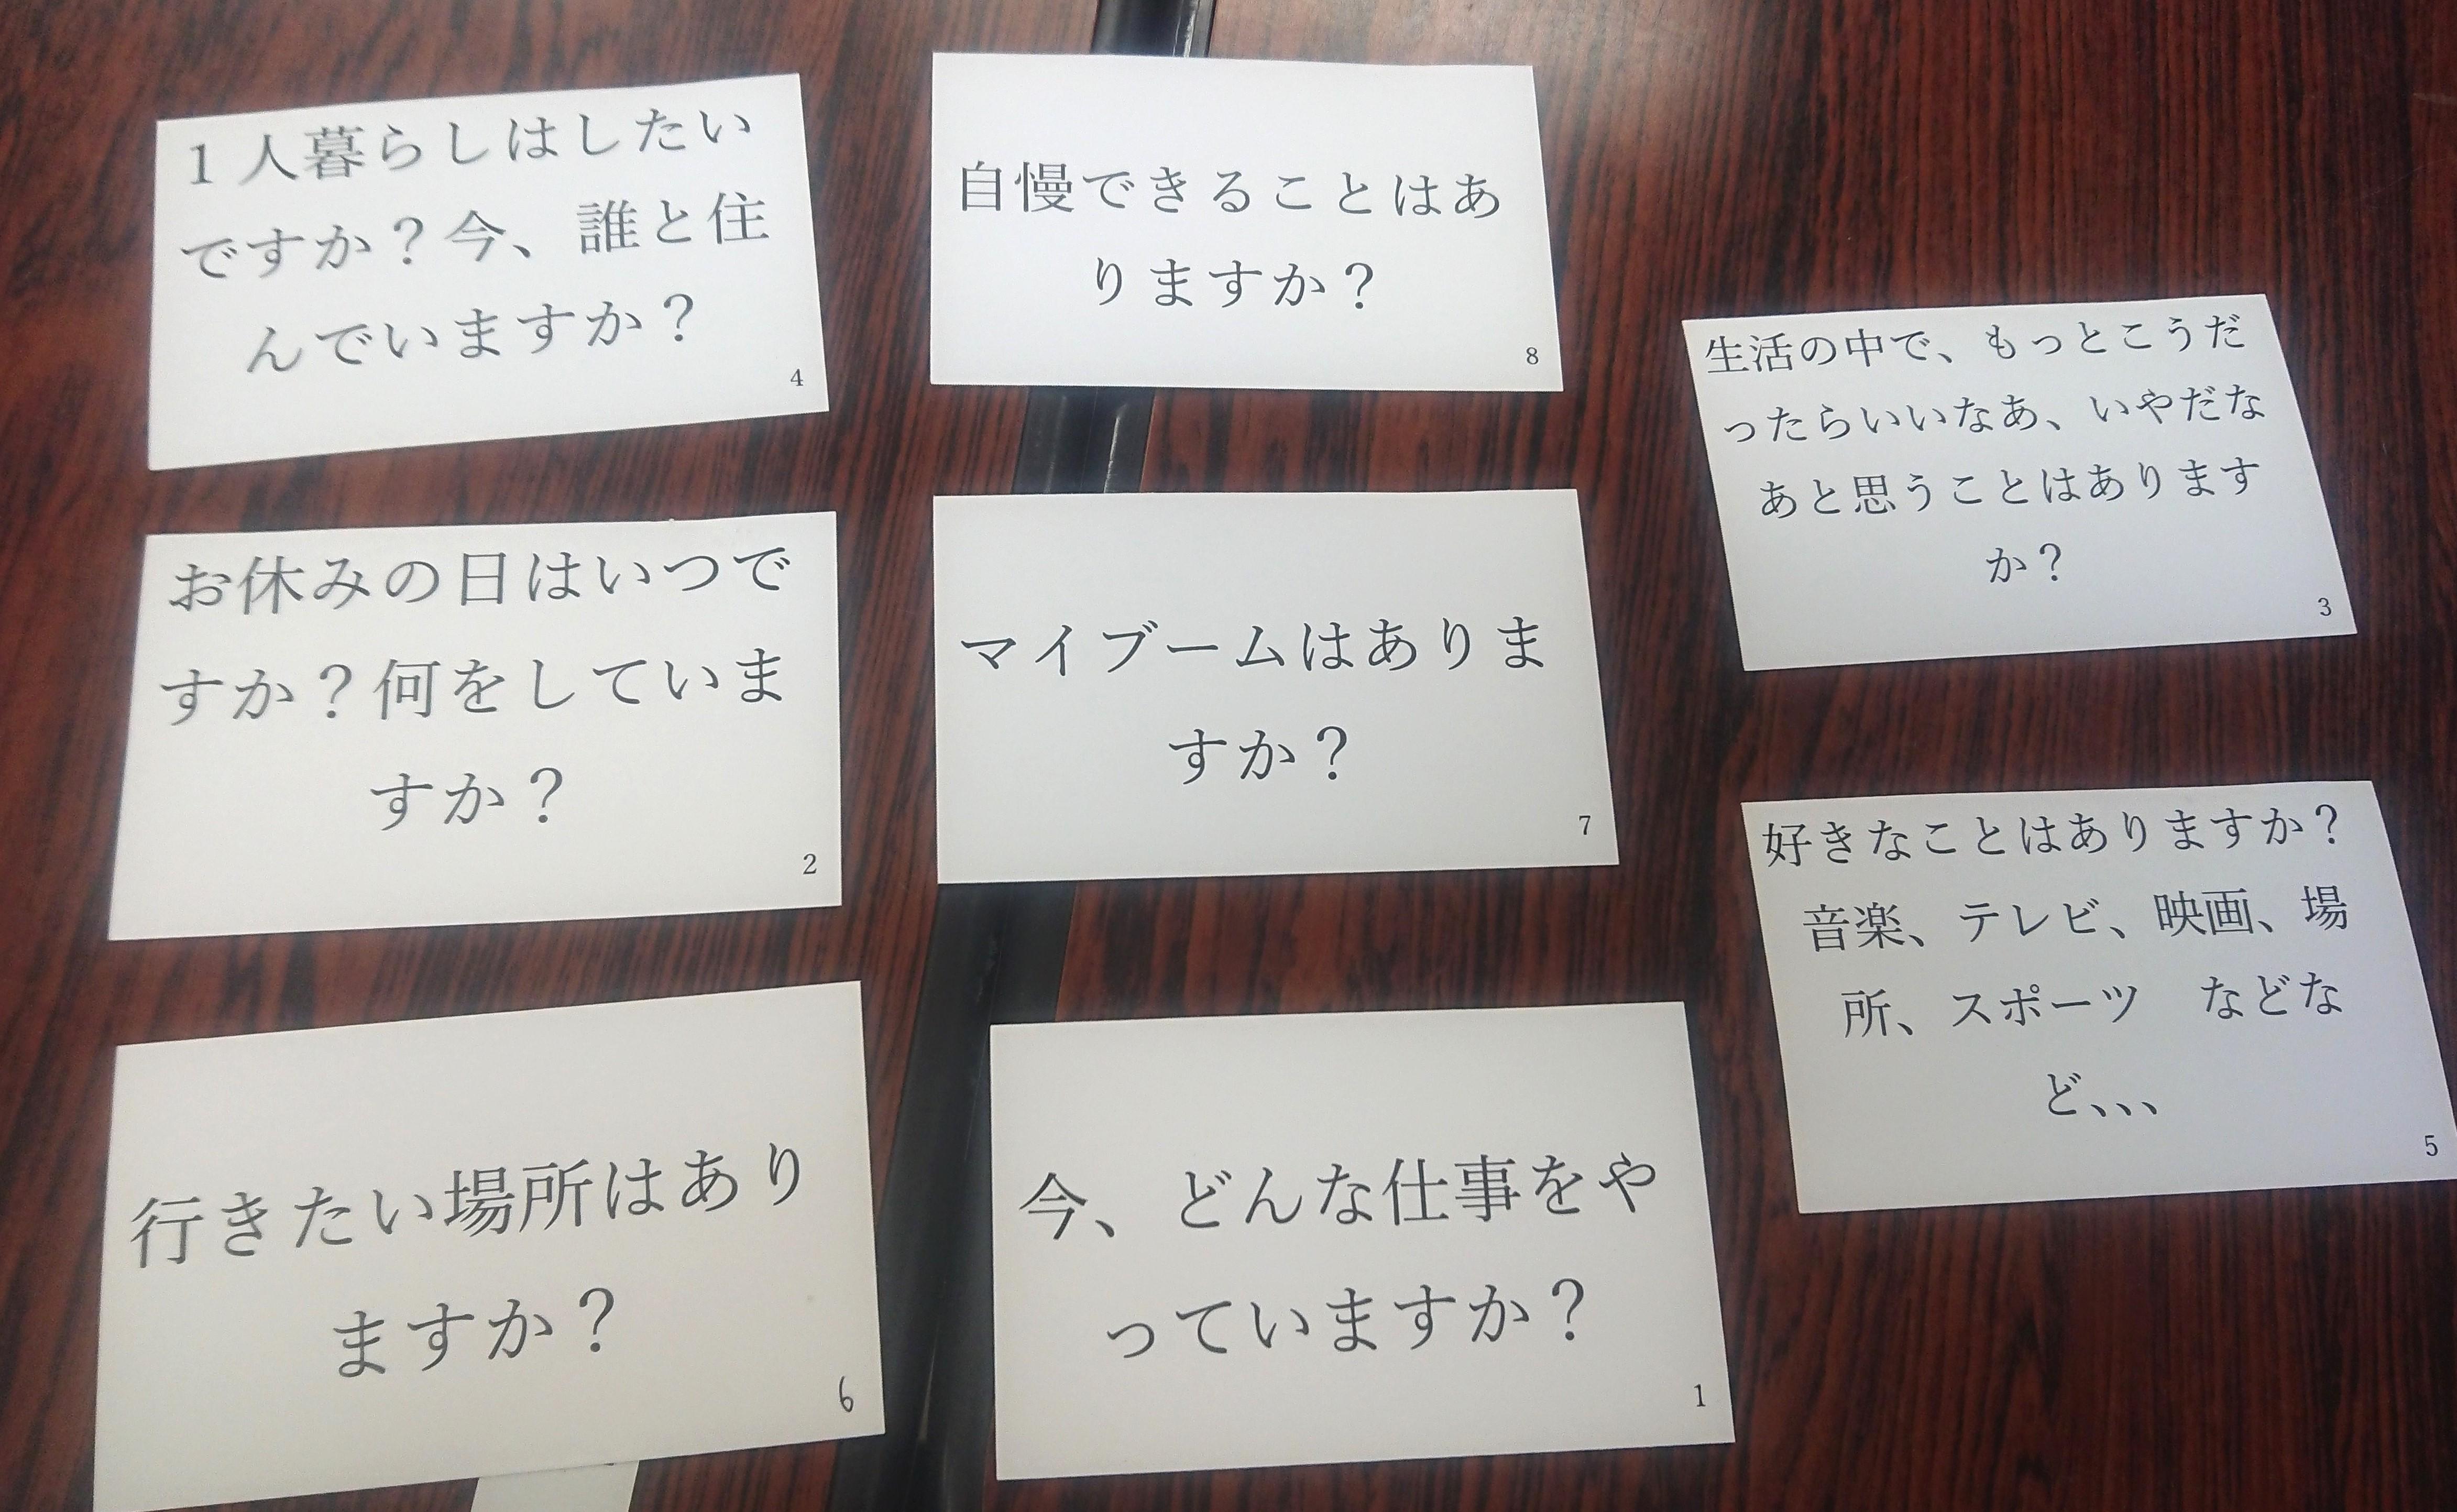 1人暮らしはしたい
ですか？今、誰と住
んでいますか？
4
自慢できることはあ
りますか？
8
生活の中で、もっとこうだ
ったらいいなあ、いやだな
あと思うことはあります
か？
3
お休みの日はいつで
すか？何をしていま
すか？
2
マイブームはありま
すか？
7
好きなことはありますか？
音楽、テレビ、映画、場
所、スポーツ　などな
ど、、、
5
行きたい場所はあり
ますか？
6
今、どんな仕事をや
っていますか？
1